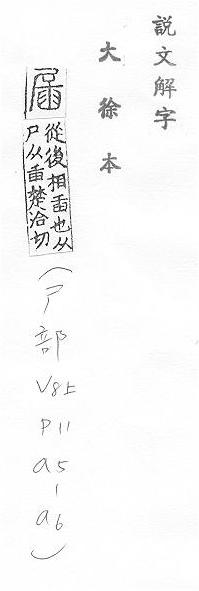 説文解字
大徐本
㞚
從後相臿也从
尸从臿楚洽切
(尸部 V8上 P11 a5-a6)